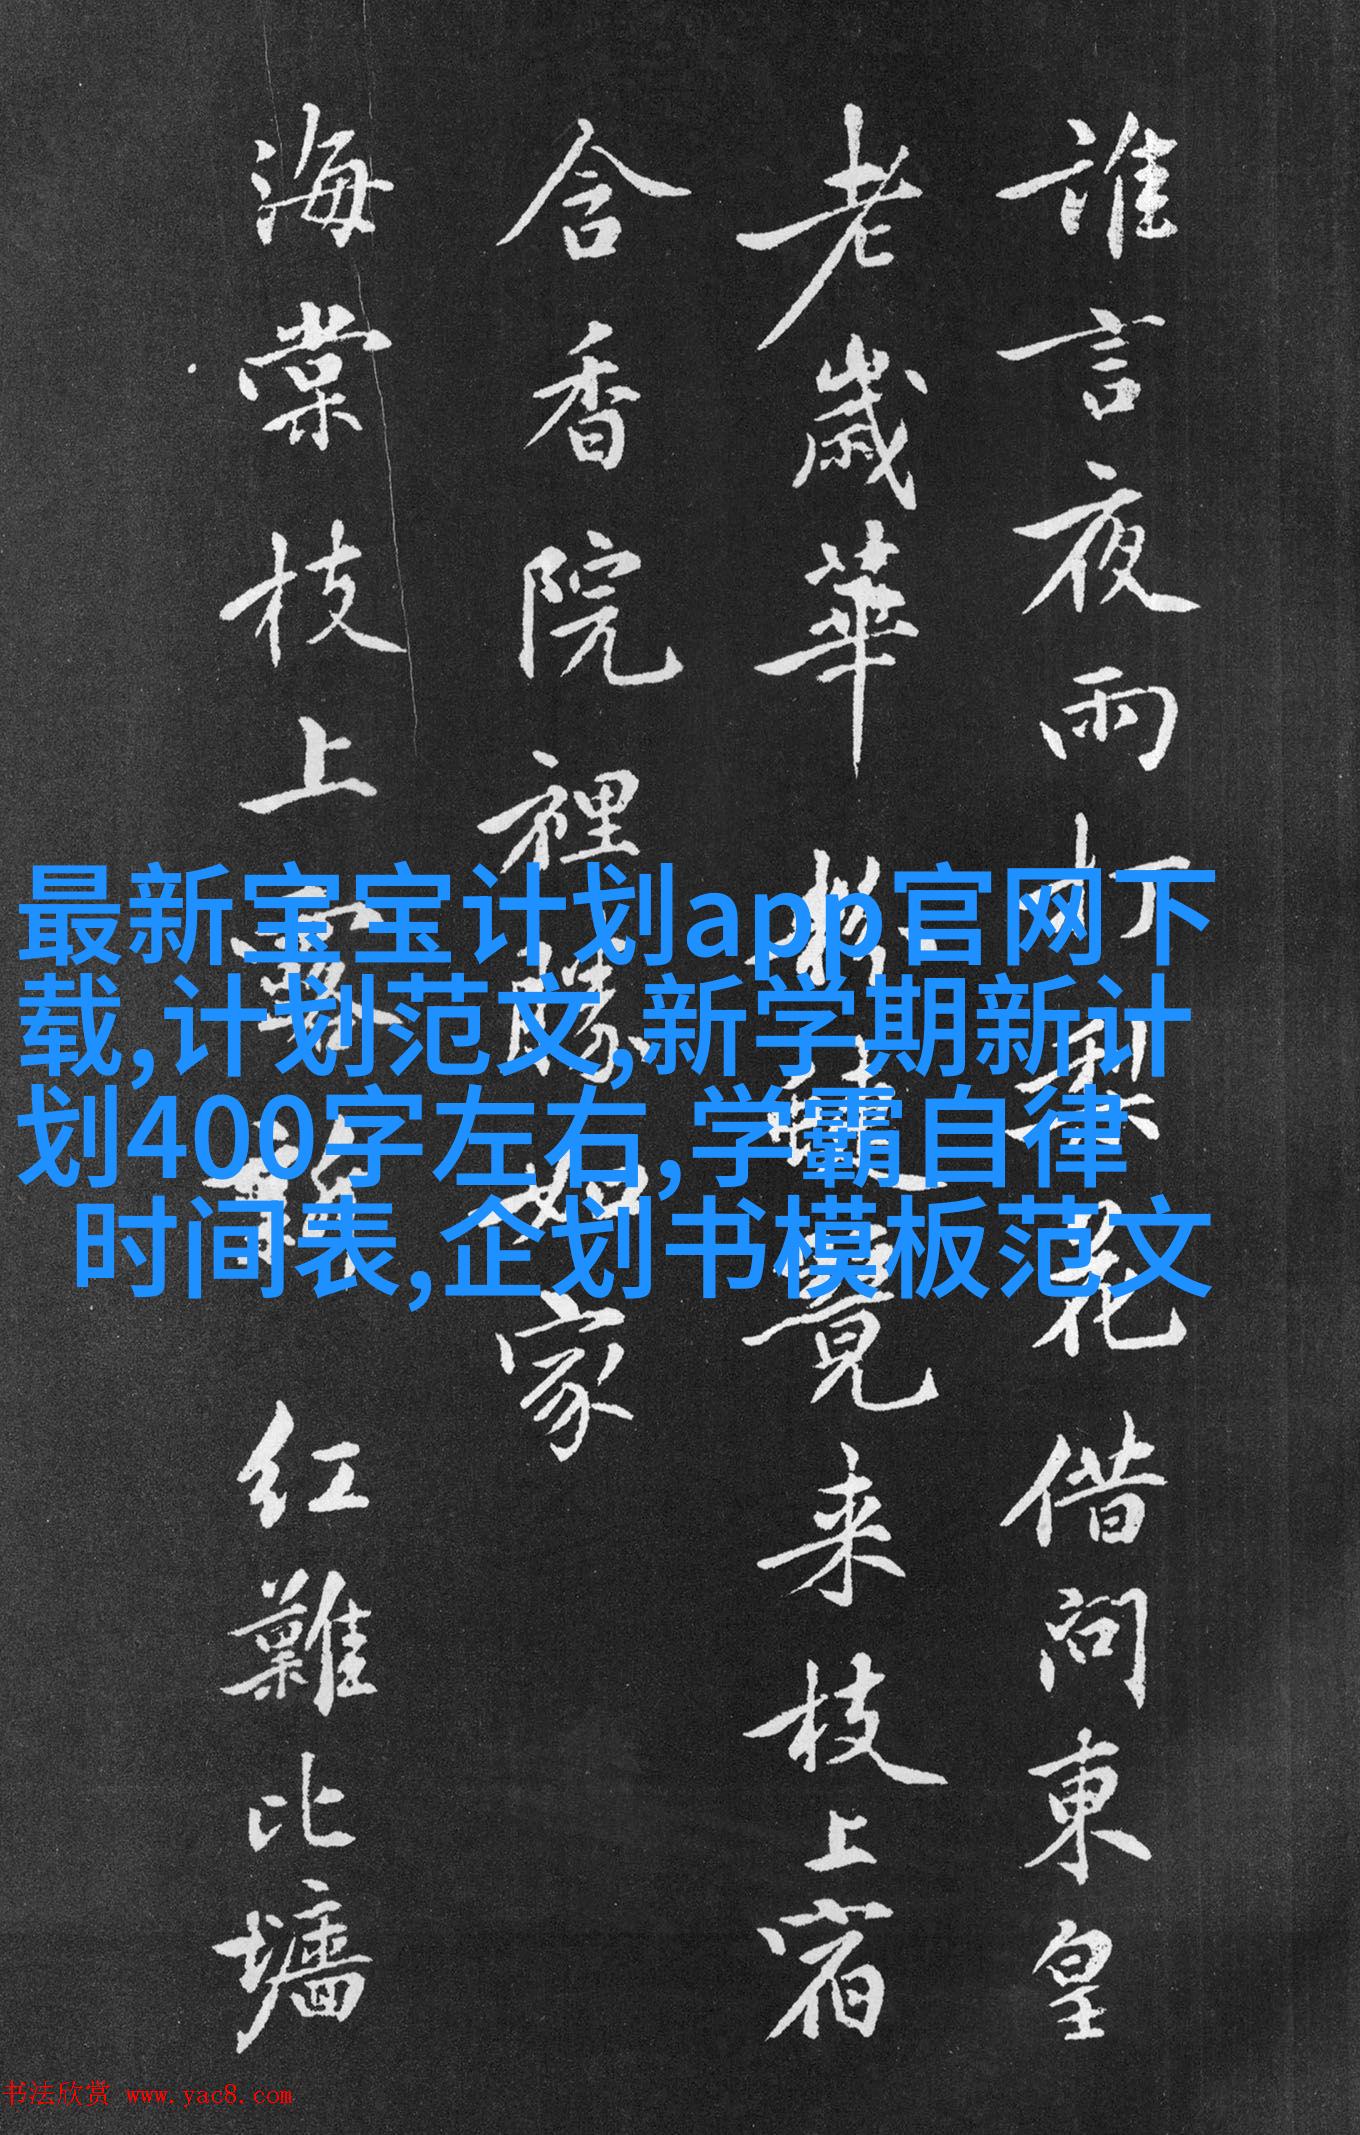 誰言夜雨打梨花借問東皇
老歲華
覺来枝上宿
含香院裡勝如家
海棠枝上露
红難比墻
最新宝宝计划app官网下
载,计划范文,新学期新计
划400字左右,学霸自律
时间表,企划书模板范文
书法欣赏 www.yac8.com